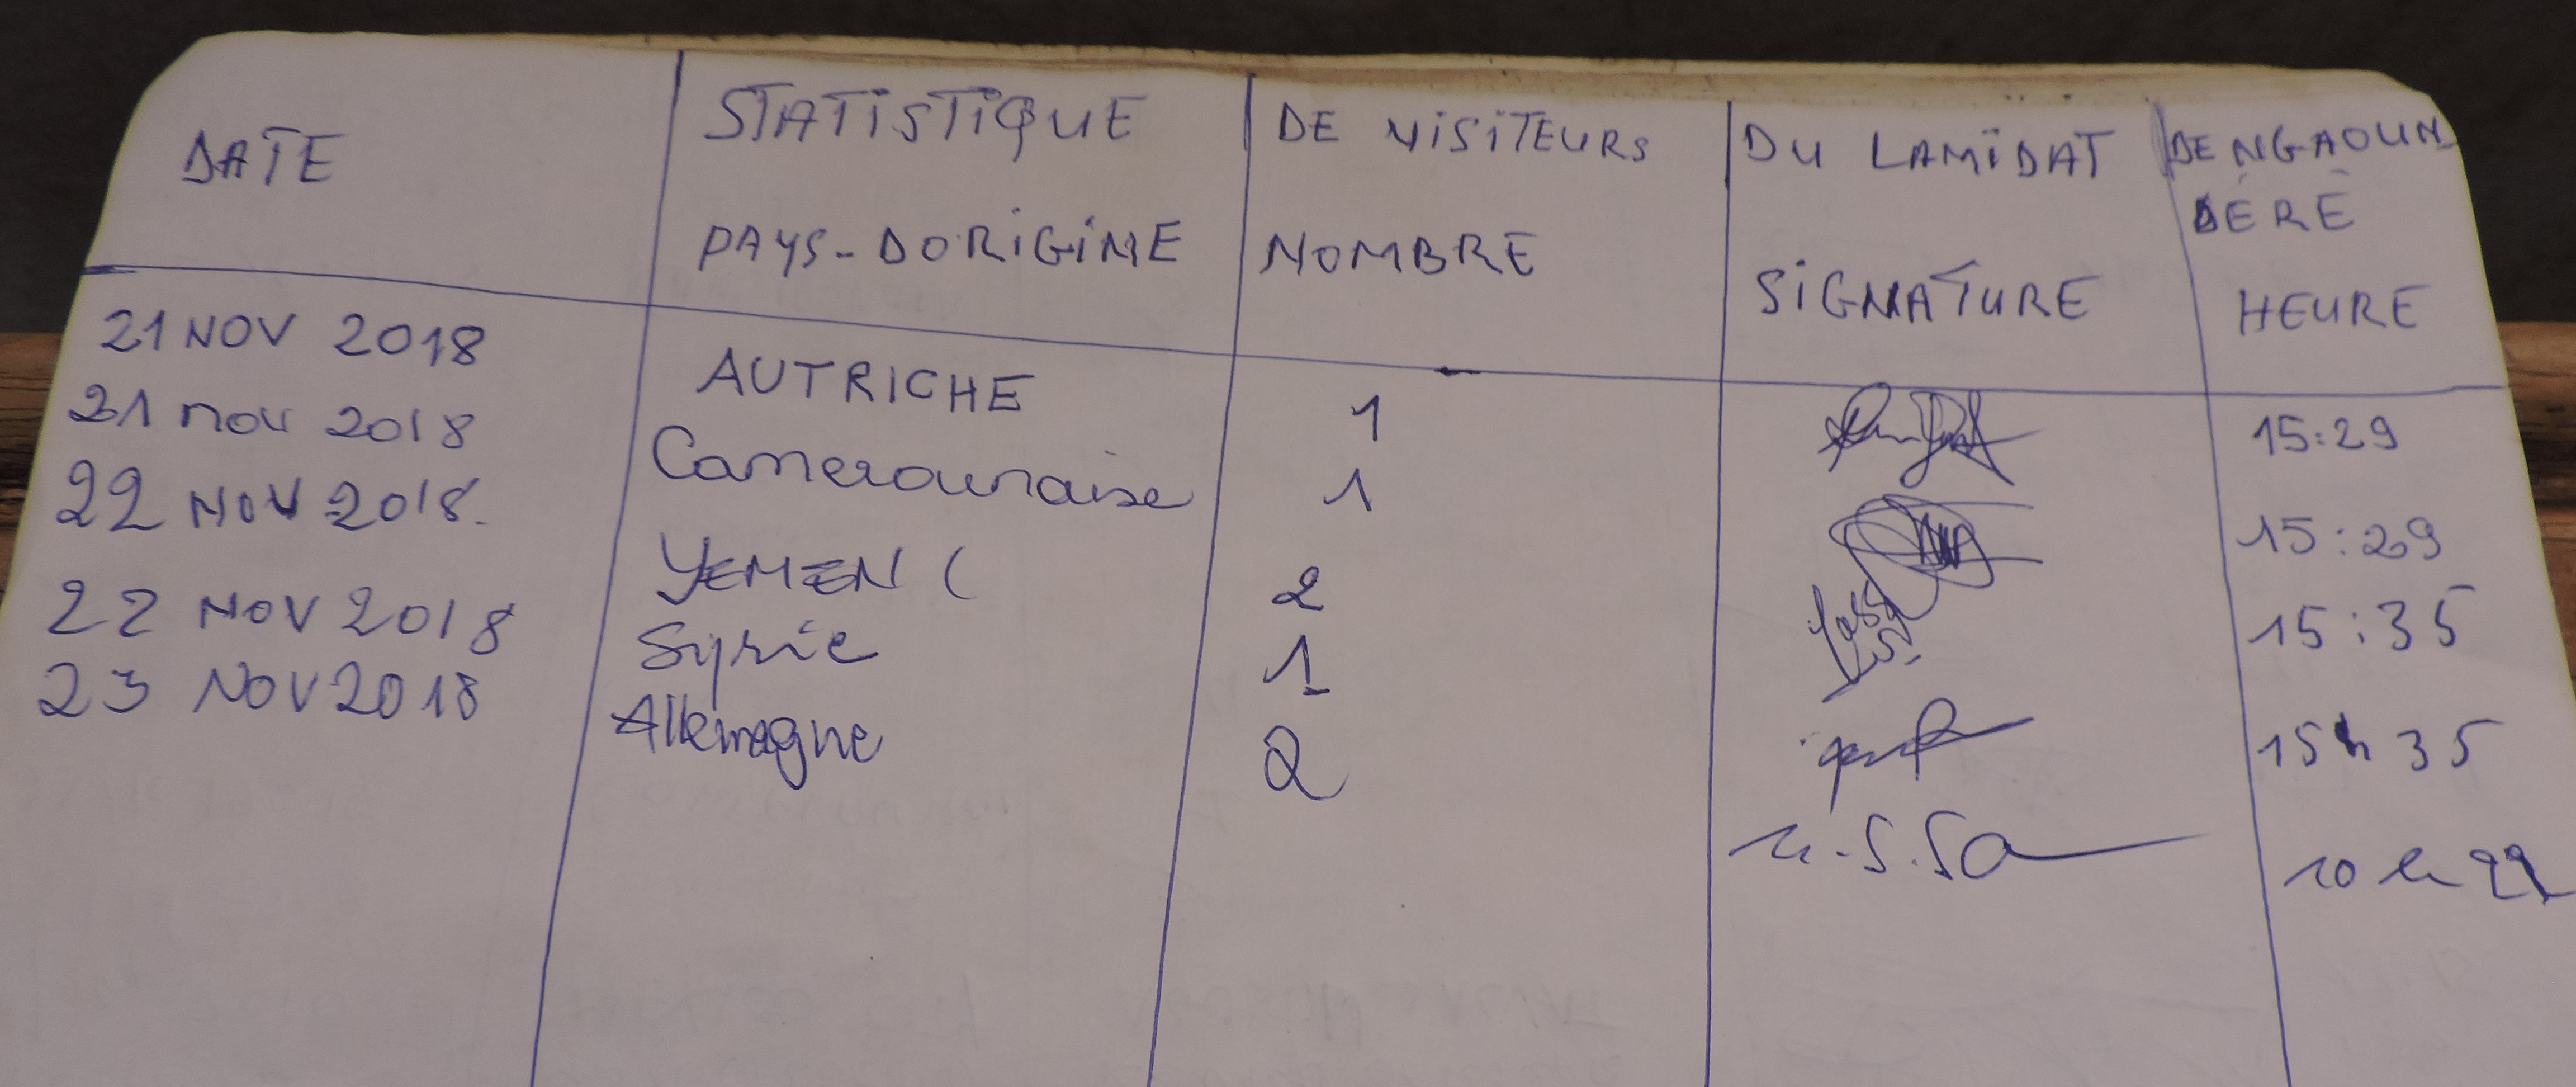 DATE STATISTIQUE DE VISITEURS DU LAMIDAT DE NGAOUN
DÉRÉ
PAYS-DORIGINE NOMBRE SIGNATURE HEURE
21 NOV 2018 AUTRICHE 1 15:29
21 nov 2018 Camerounaise 1 15:29
22 NOV 2018. YEMEN ( 2 15:35
22 NOV 2018 Syrie 1 15h35
23 NOV 2018 Allemagne 2 10h22